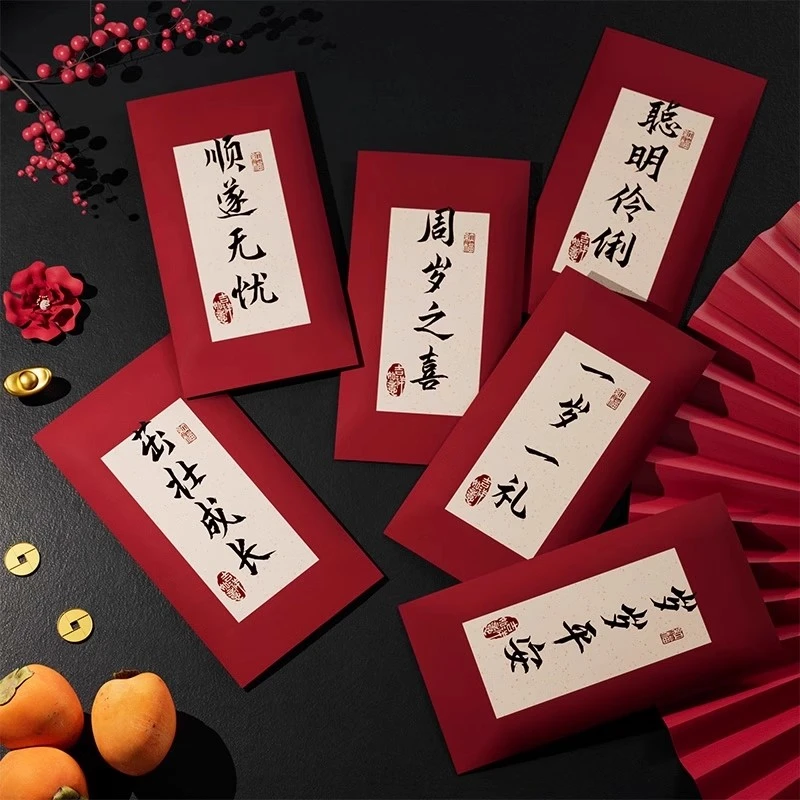 顺遂无忧
周岁之喜
聪明伶俐
茁壮成长
一岁一礼
岁岁平安